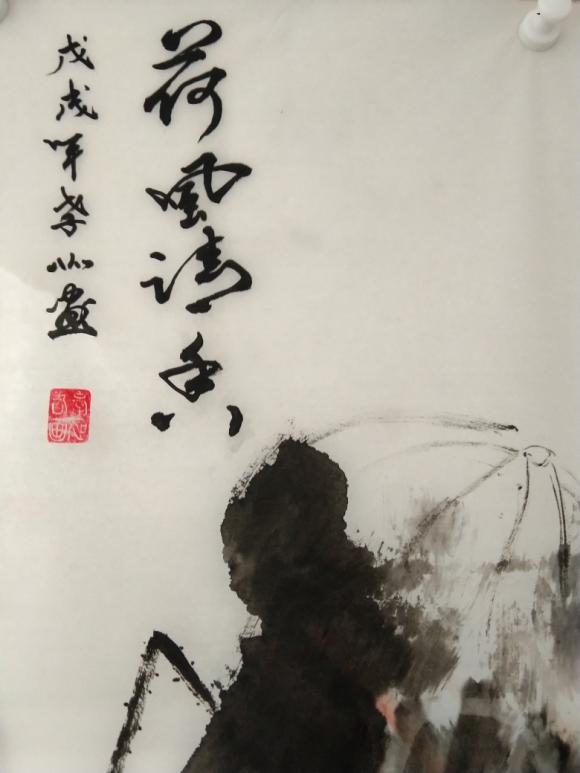 荷風清香
戊戌年 心畫